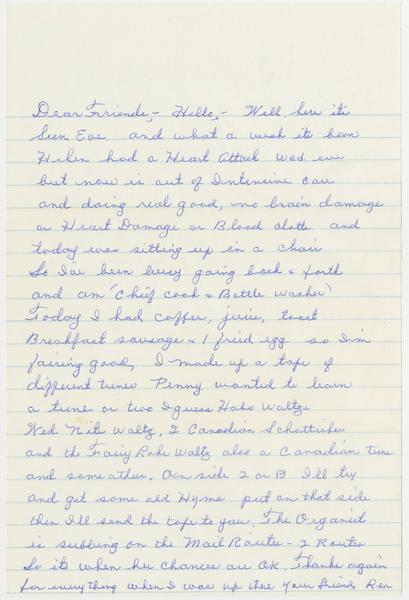 Dear Friends,- Hello,- Well, here its
Sun Eve and what a week its been
Helen had a Heart Attack Wed eve
but now is out of Intensive care
and doing real good, no brain damage
or Heart Damage or Blood clotts and
today was sitting up in a chair
So Ive been busy going back & forth
and am (chief cook & Bottle washer)
Today I had coffee, juice, toast
Breakfast sausage & 1 fried egg so I'm
fairing good, I made up a tape of
different tunes Penny wanted to learn
a tune or two I guess Hobo Waltz
Wed. Nite Waltz, 2 Canadian Schottisches
and the Fairy Robe Waltz also a Canadian tune
and some other. On side 2 or B I'll try
and get some old Hyms put on that side
then I'll send the tape to you. The Organist
is subbing on the Mail Routes - 2 Routes
So its when her chances are OK. Thanks again
for everything when I was up there Your Friends Ken